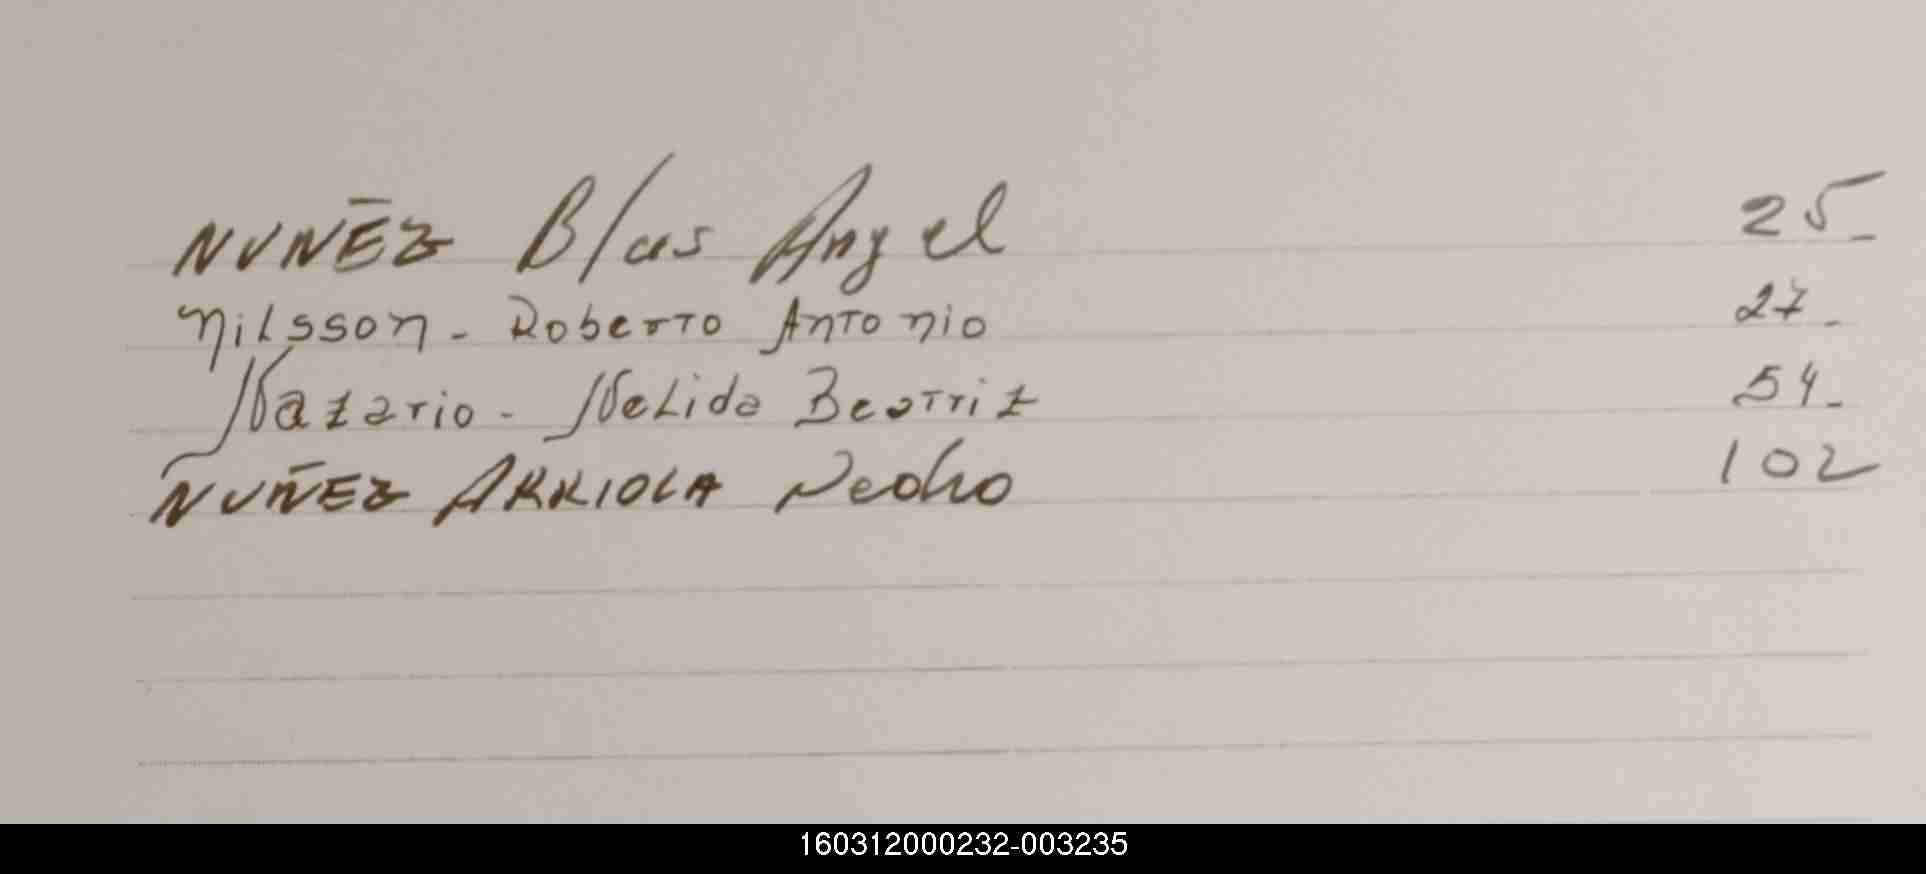 NUÑEZ Blas Angel 25_
Nilsson - Roberto Antonio 27_
Nazario - Nelida Beatriz 54_
NUÑEZ ARRIOLA Pedro 102
160312000232-003235